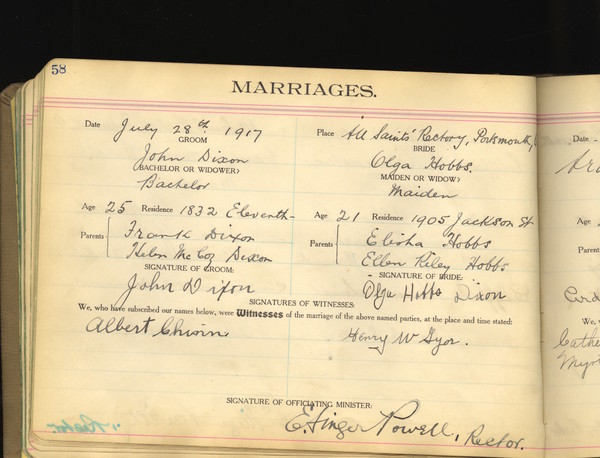 58
MARRIAGES.
Date July 28th 1917 Place All Saints' Rectory, Portsmouth, O
GROOM BRIDE
John Dixon Olga Hobbs.
(BACHELOR OR WIDOWER) MAIDEN OR WIDOW)
Bachelor Maiden
Age 25 Residence 1832 Eleventh- Age 21 Residence 1905 Jackson St
Parents Frank Dixon Parents Elisha Hobbs
Helen McCoy Dixon Ellen Riley Hobbs
SIGNATURE OF GROOM: SIGNATURE OF BRIDE:
John Dixon Olga Hobbs Dixon
SIGNATURES OF WITNESSES:
We, who have subscribed our names below, were Witnesses of the marriage of the above named parties, at the place and time stated:
Albert Henry W
SIGNATURE OF OFFICIATING MINISTER:
E. Ainger Powell, Rector.
Date
Age
Parents
We, w
Cathe